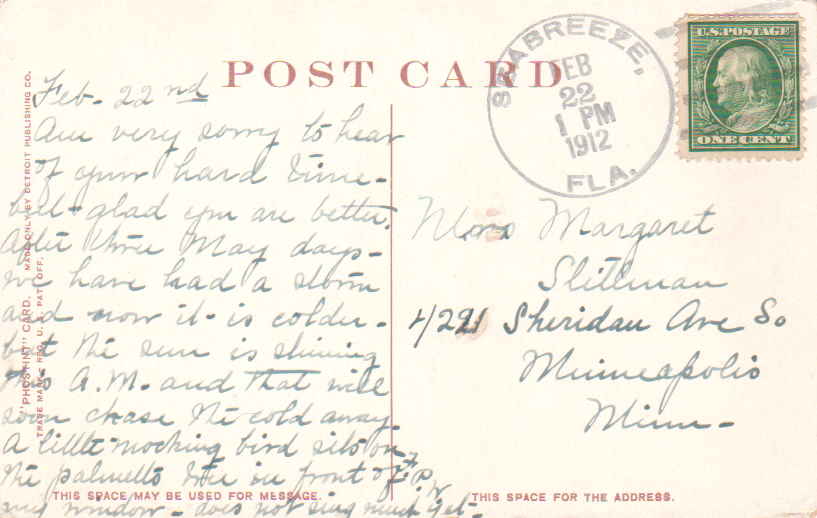 POST CARD
SEABREEZE,
FEB
22
1 PM
1912
FLA.
U.S. POSTAGE
ONE CENT
"PHOSTINT" CARD. MADE ONLY BY DETROIT PUBLISHING CO.
TRADE MARK REG. U. S. PAT. OFF.
Feb. 22nd
Am very sorry to hear
of your hard time -
but - glad you are better.
After three May days -
we have had a storm
and now it - is colder -
but the sun is shining
this A.M. and that will
soon chase the cold away.
A little mocking bird sits on
the palmetto tree in front of
my window - does not sing much yet -
F. P. W.
Margaret
Stillman
4221 Sheridan Ave So
Minneapolis
Minn -
THIS SPACE MAY BE USED FOR MESSAGE.
THIS SPACE FOR THE ADDRESS.